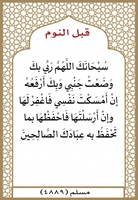 قبل النوم
سُبْحَانَكَ اللَّهُمَّ رَبِّي بِكَ
وَضَعْتُ جَنْبِي وَبِكَ أَرْفَعُهُ
إِنْ أَمْسَكْتَ نَفْسِي فَاغْفِرْ لَهَا
وَإِنْ أَرْسَلْتَهَا فَاحْفَظْهَا بِما
تَحْفَظُ به عِبَادَكَ الصَّالِحِينَ
مسلم (٤٨٨٩)